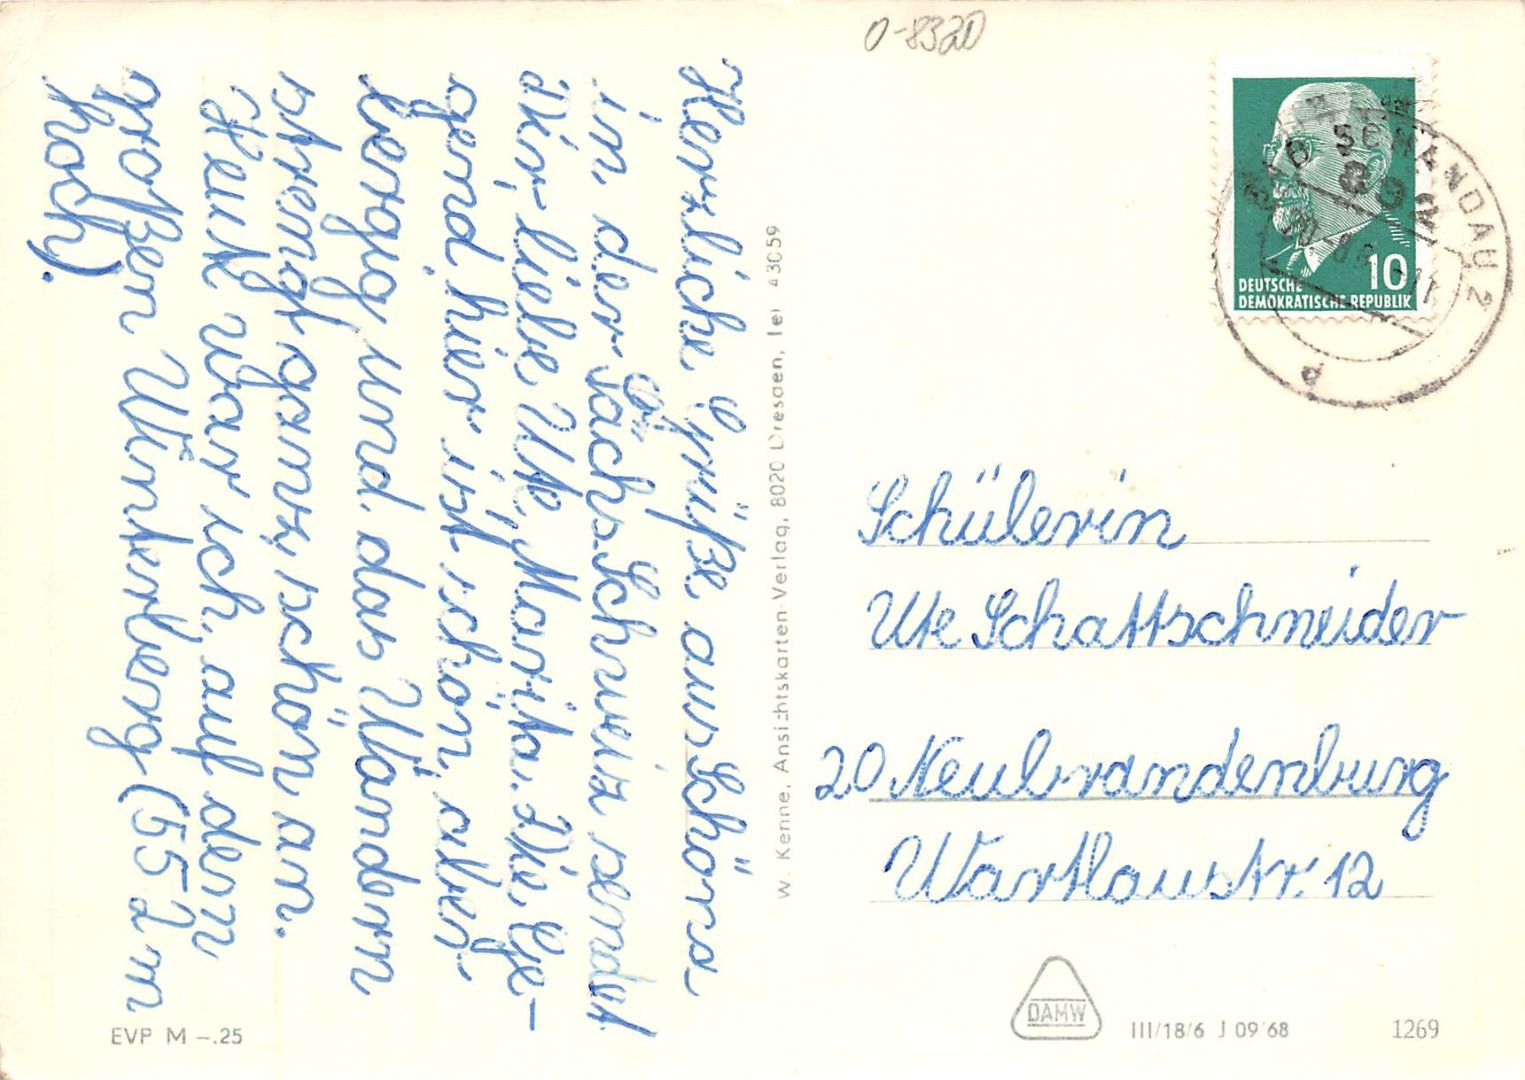 Herzliche Grüße aus Schöna
in der Sächs. Schweiz sendet
Dir, liebe Ute, Marita. Die Ge-
gend hier ist schön, aber
bergig und das Wandern
strengt ganz schön an.
Heute war ich auf dem
großen Winterberg (552 m
hoch).
EVP M –.25
W. Kenne, Ansichtskarten-Verlag, 8020 Dresden, Tel 43059
O-8320
DEUTSCHE
DEMOKRATISCHE REPUBLIK
10
BAD SCHANDAU 2
Schülerin
Ute Schattschneider
20 Neubrandenburg
Warthaustr. 12
DAMW
III/18/6 J 09 68
1269